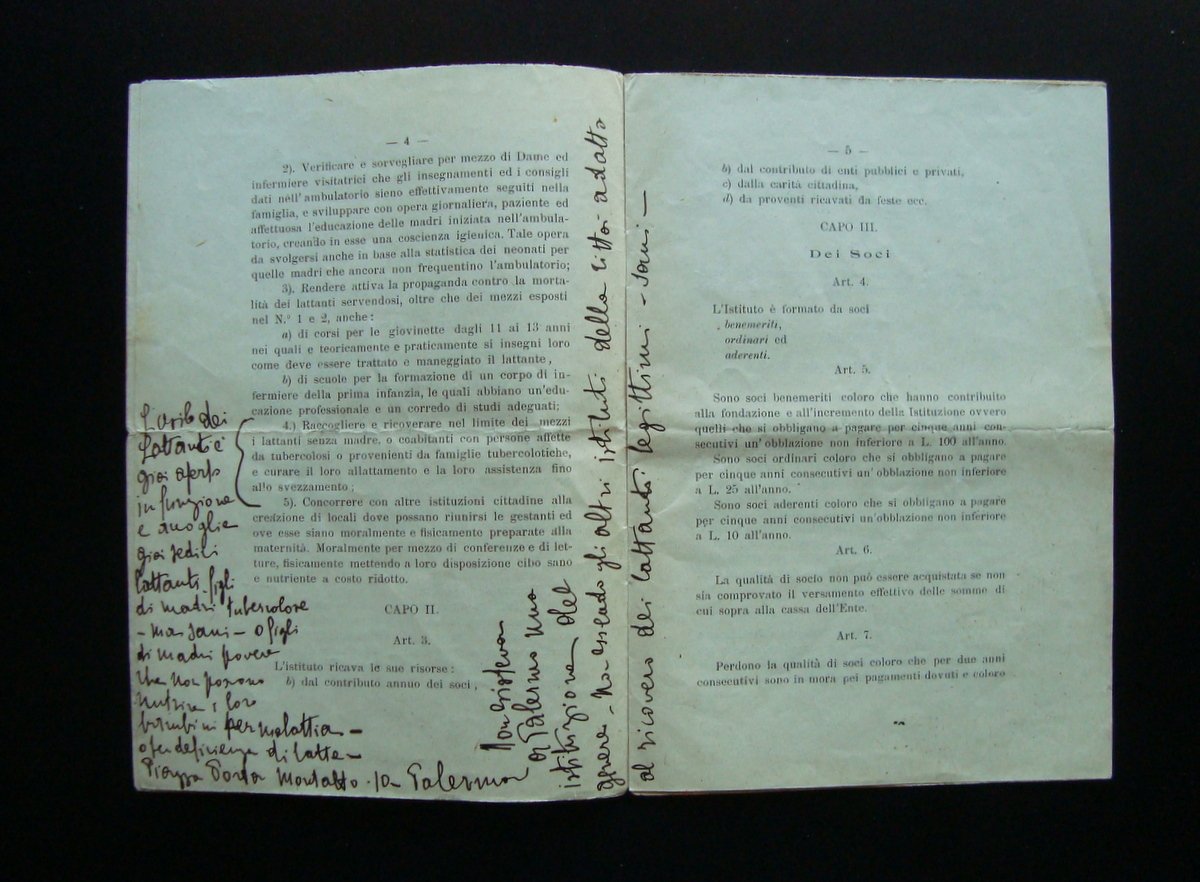 — 4 —
2). Verificare e sorvegliare per mezzo di Dame ed
infermiere visitatrici che gli insegnamenti ed i consigli
dati nell'ambulatorio sieno effettivamente seguiti nella
famiglia, e sviluppare con opera giornaliera, paziente ed
affettuosa l'educazione delle madri iniziata nell'ambula-
torio, creando in esse una coscienza igienica. Tale opera
da svolgersi anche in base alla statistica dei neonati per
quelle madri che ancora non frequentino l'ambulatorio;
3). Rendere attiva la propaganda contro la morta-
lità dei lattanti servendosi, oltre che dei mezzi esposti
nel N.º 1 e 2, anche:
a) di corsi per le giovinette dagli 11 ai 13 anni
nei quali e teoricamente e praticamente si insegni loro
come deve essere trattato e maneggiato il lattante,
b) di scuole per la formazione di un corpo di in-
fermiere della prima infanzia, le quali abbiano un'edu-
cazione professionale e un corredo di studi adeguati;
4.) Raccogliere e ricoverare nel limite dei mezzi
i lattanti senza madre, o coabitanti con persone affette
da tubercolosi o provenienti da famiglie tubercolotiche,
e curare il loro allattamento e la loro assistenza fino
allo svezzamento;
5). Concorrere con altre istituzioni cittadine alla
creazione di locali dove possano riunirsi le gestanti ed
ove esse siano moralmente e fisicamente preparate alla
maternità. Moralmente per mezzo di conferenze e di let-
ture, fisicamente mettendo a loro disposizione cibo sano
e nutriente a costo ridotto.
CAPO II.
Art. 3.
L'istituto ricava le sue risorse:
b) dal contributo annuo dei soci,
L'asilo dei
Lattanti è
già aperto
in funzione
e accoglie
già sedici
lattanti figli
di madri tubercolose
- ma sani - o figli
di madri povere
che non possono
nutrire i loro
bambini per malattia -
o per deficienza di latte -
Piazza Porta Montalto Palermo
Non esisteva
a Palermo una
istituzione del
genere - non essendo gli altri istituti della città adatto
al ricovero dei lattanti legittimi - sani -
— 5 —
b) dal contributo di enti pubblici e privati,
c) dalla carità cittadina,
d) da proventi ricavati da feste ecc.
CAPO III.
Dei Soci
Art. 4.
L'Istituto è formato da soci
benemeriti,
ordinari ed
aderenti.
Art. 5.
Sono soci benemeriti coloro che hanno contribuito
alla fondazione e all'incremento della Istituzione ovvero
quelli che si obbligano a pagare per cinque anni con-
secutivi un'obblazione non inferiore a L. 100 all'anno.
Sono soci ordinari coloro che si obbligano a pagare
per cinque anni consecutivi un'obblazione non inferiore
a L. 25 all'anno.
Sono soci aderenti coloro che si obbligano a pagare
per cinque anni consecutivi un'obblazione non inferiore
a L. 10 all'anno.
Art. 6.
La qualità di socio non può essere acquistata se non
sia comprovato il versamento effettivo delle somme di
cui sopra alla cassa dell'Ente.
Art. 7.
Perdono la qualità di soci coloro che per due anni
consecutivi sono in mora pei pagamenti dovuti e coloro